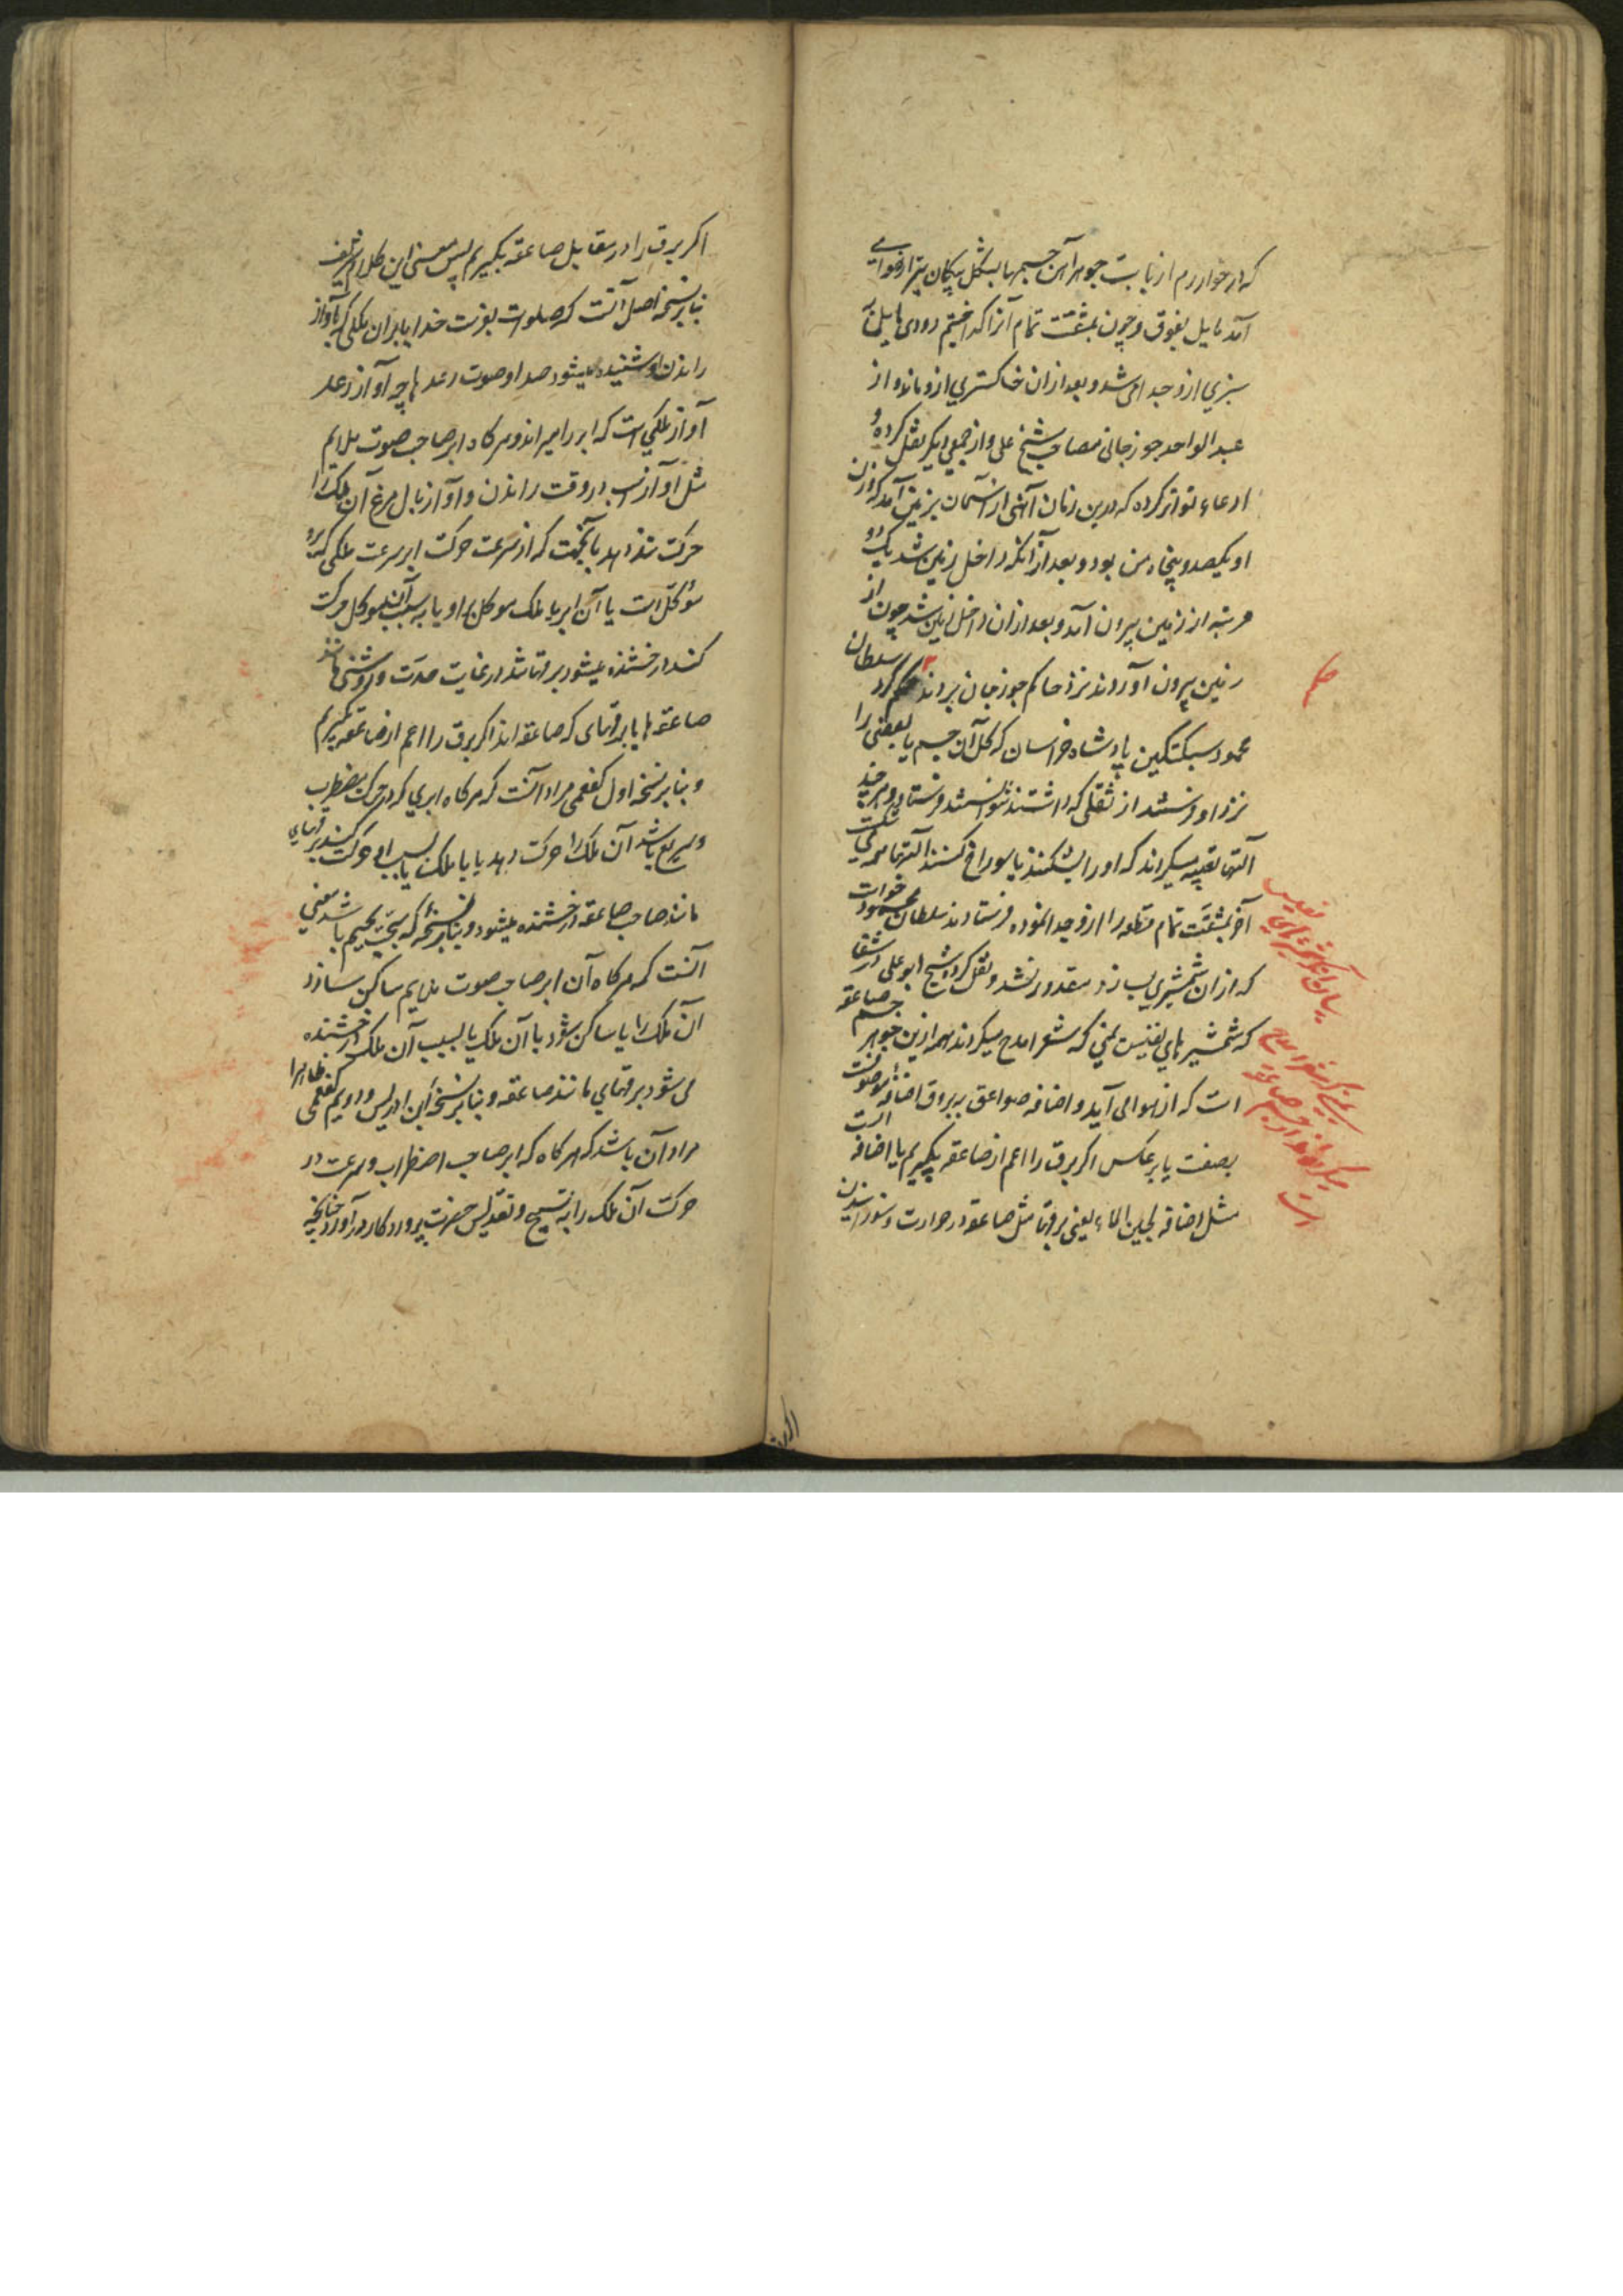 که در خوارزم از بابت جوهر آهن جسمها بشکل پیکان تیر از هوا می
آمد مایل بفوق و چون بمشقت تمام آنرا گداختیم دودی مایل به
سبزی ازو جدا می شد و بعد از آن خاکستری ازو ماند و از
عبدالواحد جوزجانی مصاحب شیخ علی و از جمعی دیگر نقل کرده و
ادعاء تواتر کرده که درین زمان آهنی از آسمان بزمین آمد که وزن
او یکصد و پنجاه من بود و بعد از آنکه داخل زمین شد یک دو
مرتبه از زمین بیرون آمد و بعد از آن داخل زمین شد چون از
زمین بیرون آوردند نزد حاکم جوزجان بردند حکم کرد سلطان
محمود سبکتکین پادشاه خراسان که کل آن جسم یا بعضی را
نزد او فرستند از ثقلی که داشتند نتوانستند فرستاد و هر چند
آلتها تعبیه میکردند که او را بشکنند یا سوراخ کنند آلتها می شکست
آخر بمشقت تمام قطعه را ازو جدا نموده فرستادند سلطان محمود خواست
که از آن شمشیری بسازد مقدور نشد و نقل کرد شیخ ابو علی در شفا
که شمشیرهای نفیس یمنی که شعرا مدح میکردند همه ازین جوهر جسم صاعقه
است که از هوا می آید و اضافه صواعق ببروق اضافه موصوفست
بصفت یا بر عکس اگر برق را اعم از صاعقه بگیریم یا اضافه است
مثل اضافه لجین الماء یعنی برقها مثل صاعقه در حرارت و سوزانیدن
اگر برق را در مقابل صاعقه بگیریم پس معنی این کلام شریف
بنابر نسخه اصل آنست که صلوات بفرست خدایا بر آن ملکی که بآواز
راندن او شنیده میشود صدا و صوت رعدها چه آواز رعد
آواز ملکی است که ابر را میراند و هرگاه ابر صاحب صوت ملایم
مثل آواز اسب در وقت راندن و آواز بال مرغ آن ملک را
حرکت تند دهد بآنجهت که از سرعت حرکت ابر سرعت ملکی که برو
موکل است یا آن ابر با ملک موکل بر او یا به سبب آن موکل حرکت
کند درخشنده میشود برقها شد در غایت حدت و روشنی مانند
صاعقه ها یا برقهای که صاعقه اند اگر برق را اعم از صاعقه بگیریم
و بنابر نسخه اول کفعمی مراد آنست که هرگاه ابری که در حرکت مضطرب
و سریع باشد آن ملک را حرکت دهد یا با ملک یا بسبب او حرکت کند برقهای
مانند صاحب صاعقه درخشنده میشود و بنابر نسخه که سجت بجیم باشد یعنی
آنست که هرگاه آن ابر صاحب صوت ملایم ساکن سازد
آن ملک را یا ساکن شود با آن ملک یا بسبب آن ملک درخشنده
می شود برقهای مانند صاعقه و بنابر نسخه ابن ادریس و دویم کفعمی ظاهرا
مراد آن باشد که هرگاه که ابر صاحب اضطراب و سرعت در
حرکت آن ملک را به تسبیح و تقدیس حضرت پروردگار در آورد چنانچه